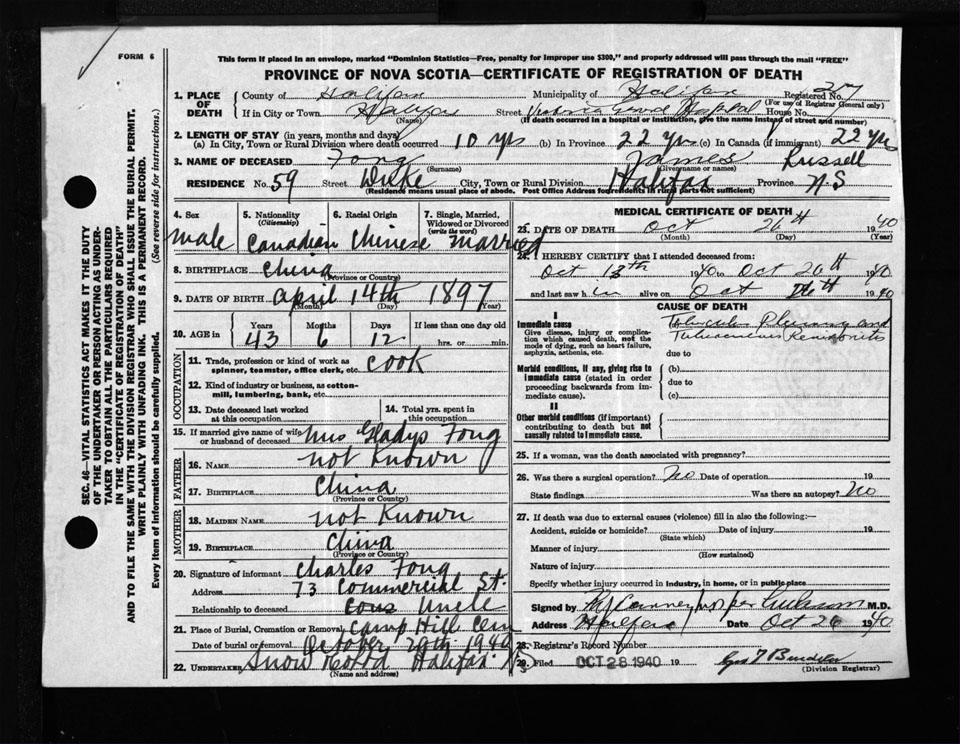 FORM 6
This form if placed in an envelope, marked "Dominion Statistics—Free, penalty for improper use $300," and properly addressed will pass through the mail "FREE"
PROVINCE OF NOVA SCOTIA—CERTIFICATE OF REGISTRATION OF DEATH
1. PLACE OF DEATH
County of Halifax Municipality of Halifax Registered No. 37
(For use of Registrar General only)
If in City or Town Halifax Street Victoria General Hospital House No.
(Name) (If death occurred in a hospital or institution, give the name instead of street and number)
2. LENGTH OF STAY (in years, months and days)
(a) In City, Town or Rural Division where death occurred 10 yrs (b) In Province 22 yrs (c) In Canada (if immigrant) 22 yrs
3. NAME OF DECEASED Fong James Russell
(Surname) (Given name or names)
RESIDENCE No. 59 Street Duke City, Town or Rural Division Halifax Province N S
(Residence means usual place of abode. Post Office Address for residents in rural parts not sufficient)
4. Sex
male
5. Nationality
(Citizenship)
Canadian
6. Racial Origin
Chinese
7. Single, Married, Widowed or Divorced
(write the word)
married
8. BIRTHPLACE China
(Province or Country)
9. DATE OF BIRTH April 14th 1897
(Month) (Day) (Year)
10. AGE in
Years Months Days If less than one day old
43 6 12 hrs. or min.
OCCUPATION
11. Trade, profession or kind of work as
spinner, teamster, office clerk, etc. Cook
12. Kind of industry or business, as cotton-
mill, lumbering, bank, etc.
13. Date deceased last worked
at this occupation
14. Total yrs. spent in
this occupation
15. If married give name of wife
or husband of deceased Mrs Gladys Fong
FATHER
16. NAME not Known
17. BIRTHPLACE China
(Province or Country)
MOTHER
18. MAIDEN NAME not Known
19. BIRTHPLACE China
(Province or Country)
20. Signature of informant Charles Fong
Address 73 Commercial St.
Relationship to deceased Cous Uncle
21. Place of Burial, Cremation or Removal Camp Hill Cem
Date of burial or removal October 29th 1940
22. UNDERTAKER Snow Co Ltd Halifax N.S
(Name and address)
MEDICAL CERTIFICATE OF DEATH
23. DATE OF DEATH Oct 26th 1940
(Month) (Day) (Year)
24. I HEREBY CERTIFY that I attended deceased from:
Oct 13th 1940 to Oct 26th 1940
and last saw him alive on Oct 26th 1940
CAUSE OF DEATH
I
Immediate cause
Give disease, injury or complication which caused death, not the mode of dying, such as heart failure, asphyxia, asthenia, etc.
Tubercular Pleurisy and
Tuberculous
due to
Morbid conditions, if any, giving rise to immediate cause (stated in order proceeding backwards from immediate cause).
(b)
due to
(c)
II
Other morbid conditions (if important) contributing to death but not causally related to immediate cause.
25. If a woman, was the death associated with pregnancy?
26. Was there a surgical operation? No Date of operation 19
State findings Was there an autopsy? No
27. If death was due to external causes (violence) fill in also the following:—
Accident, suicide or homicide? Date of injury 19
(State which)
Manner of injury
(How sustained)
Nature of injury
Specify whether injury occurred in industry, in home, or in public place
Signed by M.D.
Address Halifax Date Oct 26 1940
28. Registrar's Record Number
29. Filed OCT 28 1940 19
(Division Registrar)
SEC. 46—VITAL STATISTICS ACT MAKES IT THE DUTY
OF THE UNDERTAKER OR PERSON ACTING AS UNDER-
TAKER TO OBTAIN ALL THE PARTICULARS REQUIRED
IN THE "CERTIFICATE OF REGISTRATION OF DEATH"
AND TO FILE THE SAME WITH THE DIVISION REGISTRAR WHO SHALL ISSUE THE BURIAL PERMIT.
WRITE PLAINLY WITH UNFADING INK. THIS IS A PERMANENT RECORD.
Every item of information should be carefully supplied. (See reverse side for instructions.)